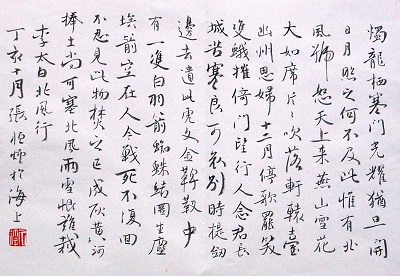 燭龍栖寒門光耀猶旦開
日月照之何不及此惟有北
風號怒天上來燕山雪花
大如席片々吹落軒轅臺
幽州思婦十二月停歌罷笑
雙蛾摧倚門望行人念君長
城苦寒良可哀別時提劍
邊去遺此虎文金鞞靫中
有一雙白羽箭蜘蛛結網生塵
埃箭空在人今戰死不復回
不忍見此物焚之已成灰黃河
捧土尚可塞北風雨雪恨難裁
李太白北風行
丁亥十月張恒於海上